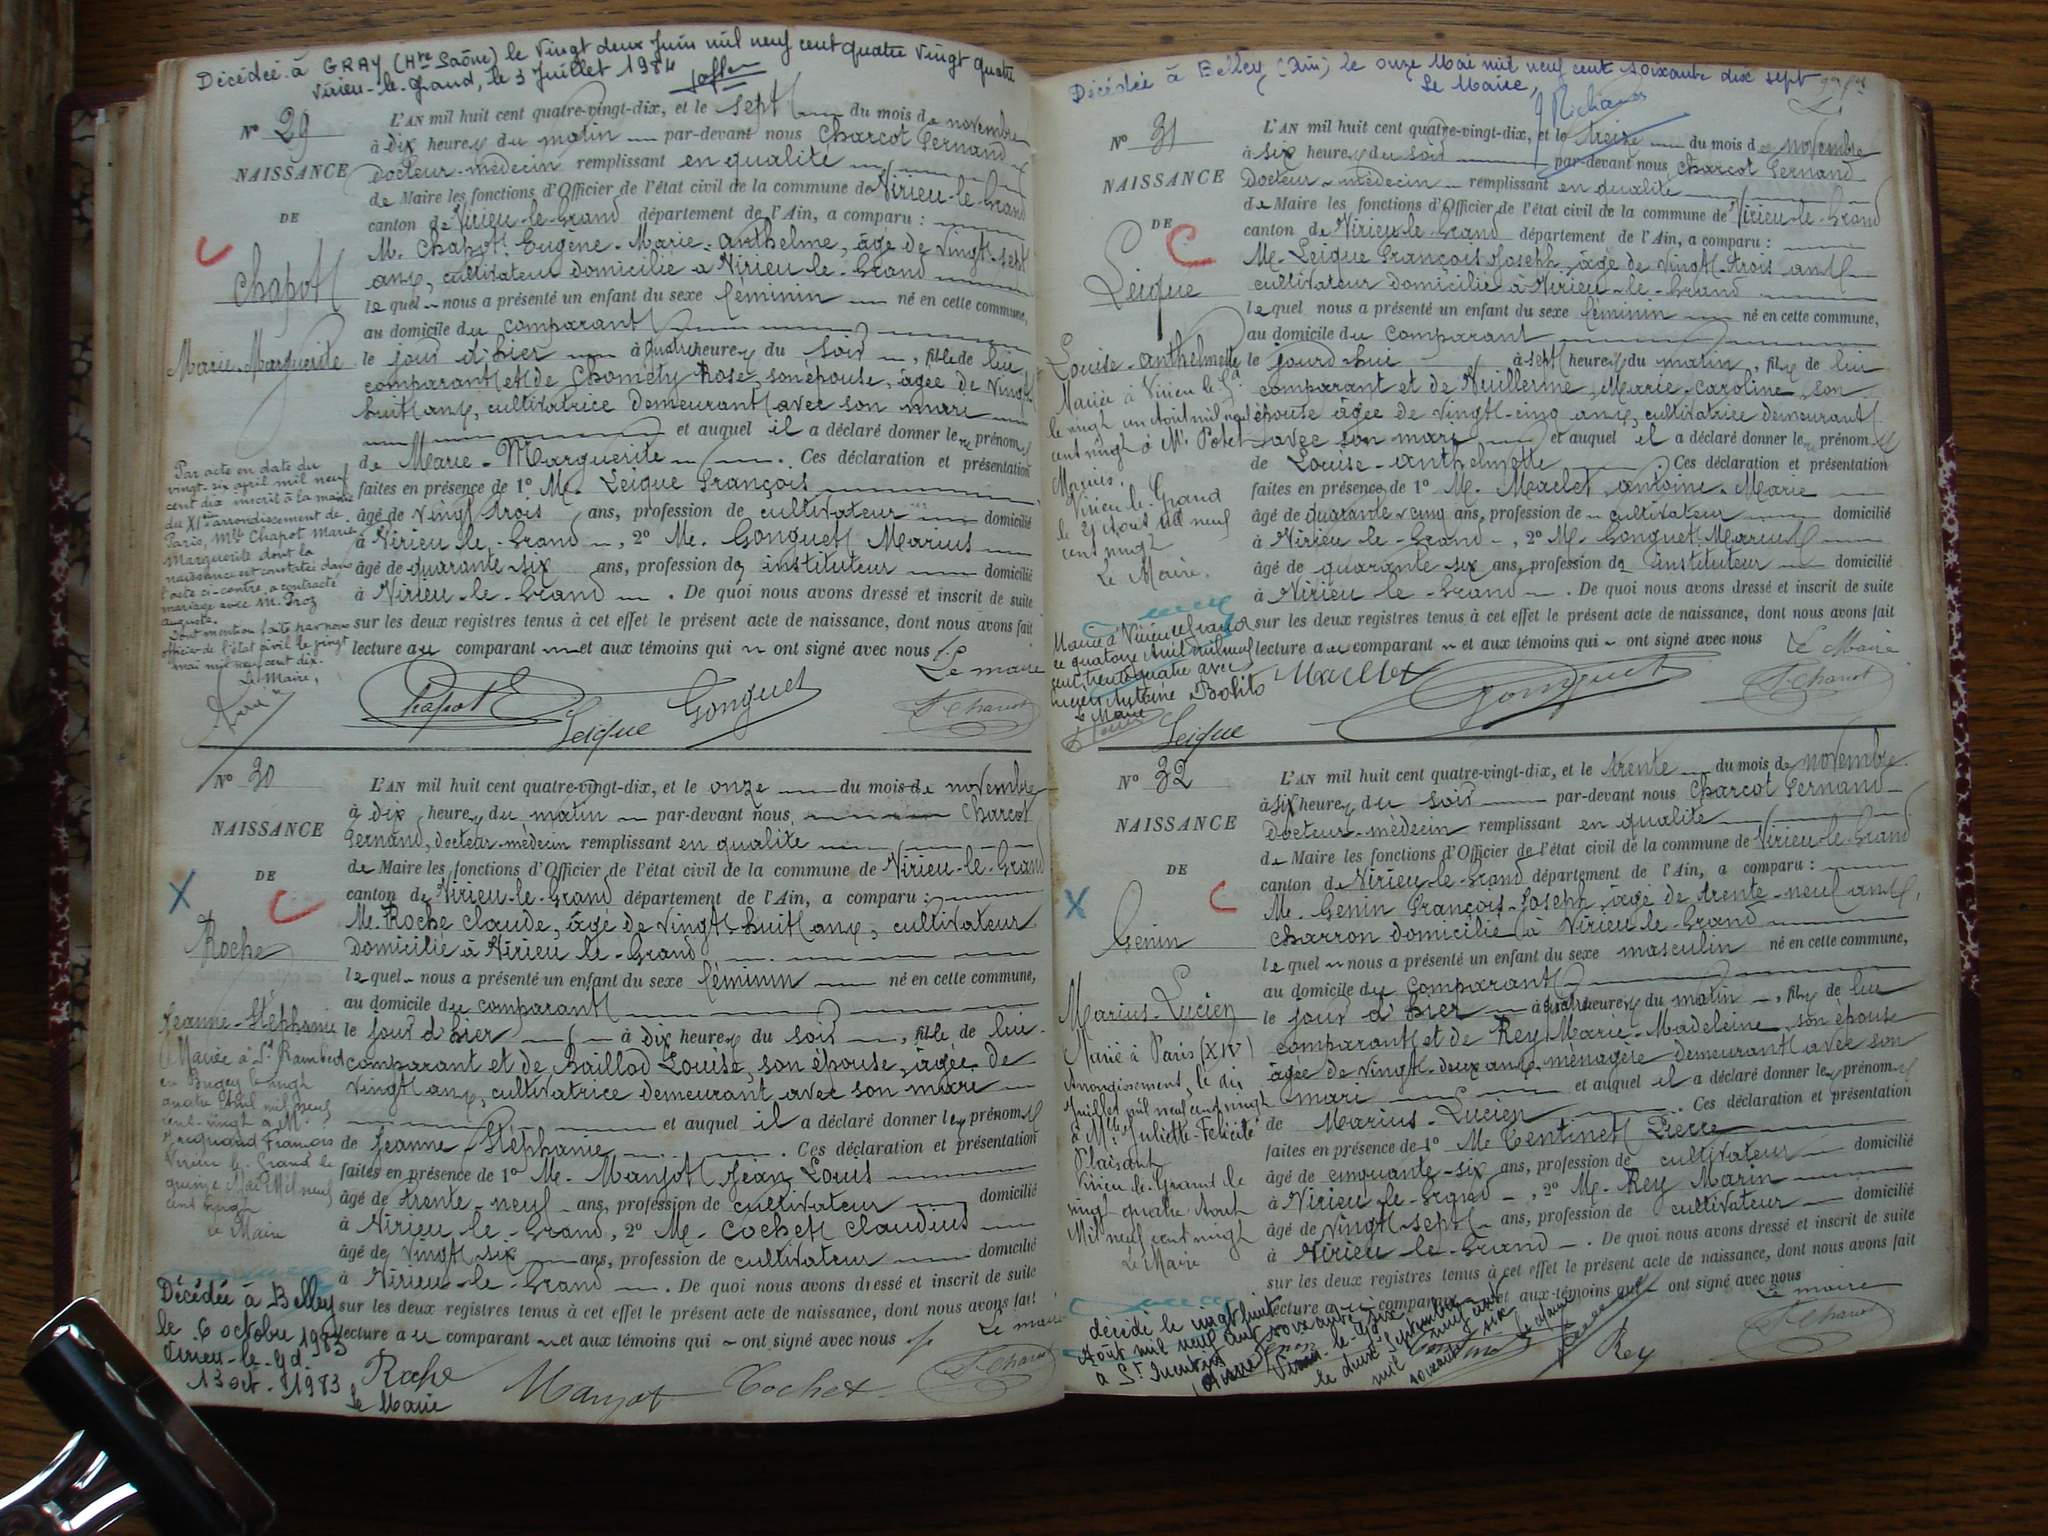 Décédée à GRAY (Hte Saône) le vingt deux Juin mil neuf cent quatre vingt quatre
Virieu-le-Grand, le 3 Juillet 1984
N° 29
NAISSANCE
DE
Chapot
Marie-Marguerite
L'AN mil huit cent quatre-vingt-dix, et le sept du mois de novembre
à dix heures du matin par-devant nous Charcot Fernand
Docteur-médecin remplissant en qualité
de Maire les fonctions d'Officier de l'état civil de la commune de Virieu-le-Grand
canton de Virieu-le-Grand département de l'Ain, a comparu :
M. Chapot Eugène-Marie-Anthelme, âgé de vingt-sept
ans, cultivateur domicilié à Virieu-le-Grand
lequel nous a présenté un enfant du sexe féminin né en cette commune,
au domicile du comparant
le jour d'hier à quatre heures du soir, fille de lui
comparant et de Chomety Rose, son épouse, âgée de vingt
huit ans, cultivatrice demeurant avec son mari
et auquel il a déclaré donner les prénoms
de Marie-Marguerite. Ces déclaration et présentation
faites en présence de 1° M. Leigue François
âgé de vingt trois ans, profession de cultivateur domicilié
à Virieu-le-Grand, 2° M. Gonguet Marius
âgé de quarante-six ans, profession de instituteur domicilié
à Virieu-le-Grand. De quoi nous avons dressé et inscrit de suite
sur les deux registres tenus à cet effet le présent acte de naissance, dont nous avons fait
lecture au comparant et aux témoins qui ont signé avec nous
Le maire
Chapot E
Leigue
Gonguet
F. Charcot
Par acte en date du
vingt-six avril mil neuf
cent dix inscrit à la mairie
du XIe arrondissement de
Paris, Mlle Chapot Marie-
Marguerite dont la
naissance est constatée dans
l'acte ci-contre, a contracté
mariage avec M. Proz
Auguste.
Dont mention faite par nous
officier de l'état civil le vingt
mai mil neuf cent dix.
Le Maire,
N° 30
NAISSANCE
DE
Roche
Jeanne-Stéphanie
L'AN mil huit cent quatre-vingt-dix, et le onze du mois de novembre
à dix heures du matin par-devant nous Charcot
Fernand, docteur-médecin remplissant en qualité
de Maire les fonctions d'Officier de l'état civil de la commune de Virieu-le-Grand
canton de Virieu-le-Grand département de l'Ain, a comparu :
M. Roche Claude, âgé de vingt-huit ans, cultivateur
domicilié à Virieu-le-Grand
lequel nous a présenté un enfant du sexe féminin né en cette commune,
au domicile du comparant
le jour d'hier à dix heures du soir, fille de lui
comparant et de Baillod Louise, son épouse, âgée de
vingt ans, cultivatrice demeurant avec son mari
et auquel il a déclaré donner les prénoms
de Jeanne Stéphanie. Ces déclaration et présentation
faites en présence de 1° M. Manjot Jean Louis
âgé de trente-neuf ans, profession de cultivateur domicilié
à Virieu-le-Grand, 2° M. Cochet Claudius
âgé de vingt six ans, profession de cultivateur domicilié
à Virieu-le-Grand. De quoi nous avons dressé et inscrit de suite
sur les deux registres tenus à cet effet le présent acte de naissance, dont nous avons fait
lecture au comparant et aux témoins qui ont signé avec nous
Le maire
Roche
Manjot
Cochet
F. Charcot
Mariée à St Rambert
en Bugey le vingt
quatre Avril mil neuf
cent-vingt à M.
Jacquand François
Virieu le-Grand le
quinze Mai Mil neuf
cent vingt
Le Maire
Décédée à Belley
le 6 octobre 1983
Virieu-le-Gd.
13 oct. 1983
Le Maire
Décédée à Belley (Ain) le onze Mai mil neuf cent soixante dix sept
Le Maire,
N° 31
NAISSANCE
DE
Leigue
Louise-Anthelmette
L'AN mil huit cent quatre-vingt-dix, et le treize du mois de novembre
à six heures du soir par-devant nous Charcot Fernand
Docteur-médecin remplissant en qualité
de Maire les fonctions d'Officier de l'état civil de la commune de Virieu-le-Grand
canton de Virieu-le-Grand département de l'Ain, a comparu :
M. Leigue François Joseph, âgé de vingt-trois ans
cultivateur domicilié à Virieu-le-Grand
lequel nous a présenté un enfant du sexe féminin né en cette commune,
au domicile du comparant
le jourd'hui à sept heures du matin, fille de lui
comparant et de Vuillerme, Marie-Caroline, son
épouse âgée de vingt-cinq ans, cultivatrice demeurant
avec son mari et auquel il a déclaré donner les prénoms
de Louise-Anthelmette Ces déclaration et présentation
faites en présence de 1° M. Maclet Antoine-Marie
âgé de quarante cinq ans, profession de cultivateur domicilié
à Virieu-le-Grand, 2° M. Gonguet Marius
âgé de quarante six ans, profession de instituteur domicilié
à Virieu-le-Grand. De quoi nous avons dressé et inscrit de suite
sur les deux registres tenus à cet effet le présent acte de naissance, dont nous avons fait
lecture au comparant et aux témoins qui ont signé avec nous
Le Maire
Maclet
Gonguet
F. Charcot
Leigue
Mariée à Virieu le Gd
le vingt un Août mil neuf
cent vingt à M. Potet
Virieu-le-Grand
le 21 Août mil neuf
cent vingt
Le Maire.
Mariée à Virieu le Grand
le quatorze Avril mil neuf
cent trente quatre avec
Antoine
Le Maire
N° 32
NAISSANCE
DE
Genin
Marius-Lucien
L'AN mil huit cent quatre-vingt-dix, et le trente du mois de novembre
à six heures du soir par-devant nous Charcot Fernand
Docteur-médecin remplissant en qualité
de Maire les fonctions d'Officier de l'état civil de la commune de Virieu-le-Grand
canton de Virieu-le-Grand département de l'Ain, a comparu :
M. Genin François-Joseph, âgé de trente-neuf ans,
charron domicilié à Virieu-le-Grand
lequel nous a présenté un enfant du sexe masculin né en cette commune,
au domicile du comparant
le jour d'hier à quatre heures du matin, fils de lui
comparant et de Rey Marie-Madeleine, son épouse
âgée de vingt-deux ans ménagère demeurant avec son
mari et auquel il a déclaré donner les prénoms
de Marius-Lucien. Ces déclaration et présentation
faites en présence de 1° M. Tentinet Pierre
âgé de cinquante-six ans, profession de cultivateur domicilié
à Virieu-le-Grand, 2° M. Rey Marin
âgé de vingt-sept ans, profession de cultivateur domicilié
à Virieu-le-Grand. De quoi nous avons dressé et inscrit de suite
sur les deux registres tenus à cet effet le présent acte de naissance, dont nous avons fait
lecture au comparant et aux témoins qui ont signé avec nous
Le maire
Rey
F. Charcot
Marié à Paris (XIV)
Arrondissement, le dix
Juillet mil neuf cent vingt
à Mlle Juliette-Félicité
Plaisant
Virieu-le-Grand le
vingt quatre Août
Mil neuf cent vingt
Le Maire
décédé le vingt huit
Août mil neuf cent soixante six
à St Quentin (Aisne)
Virieu-le-Gd
le deux Septembre
mil neuf cent
soixante six
Le Maire